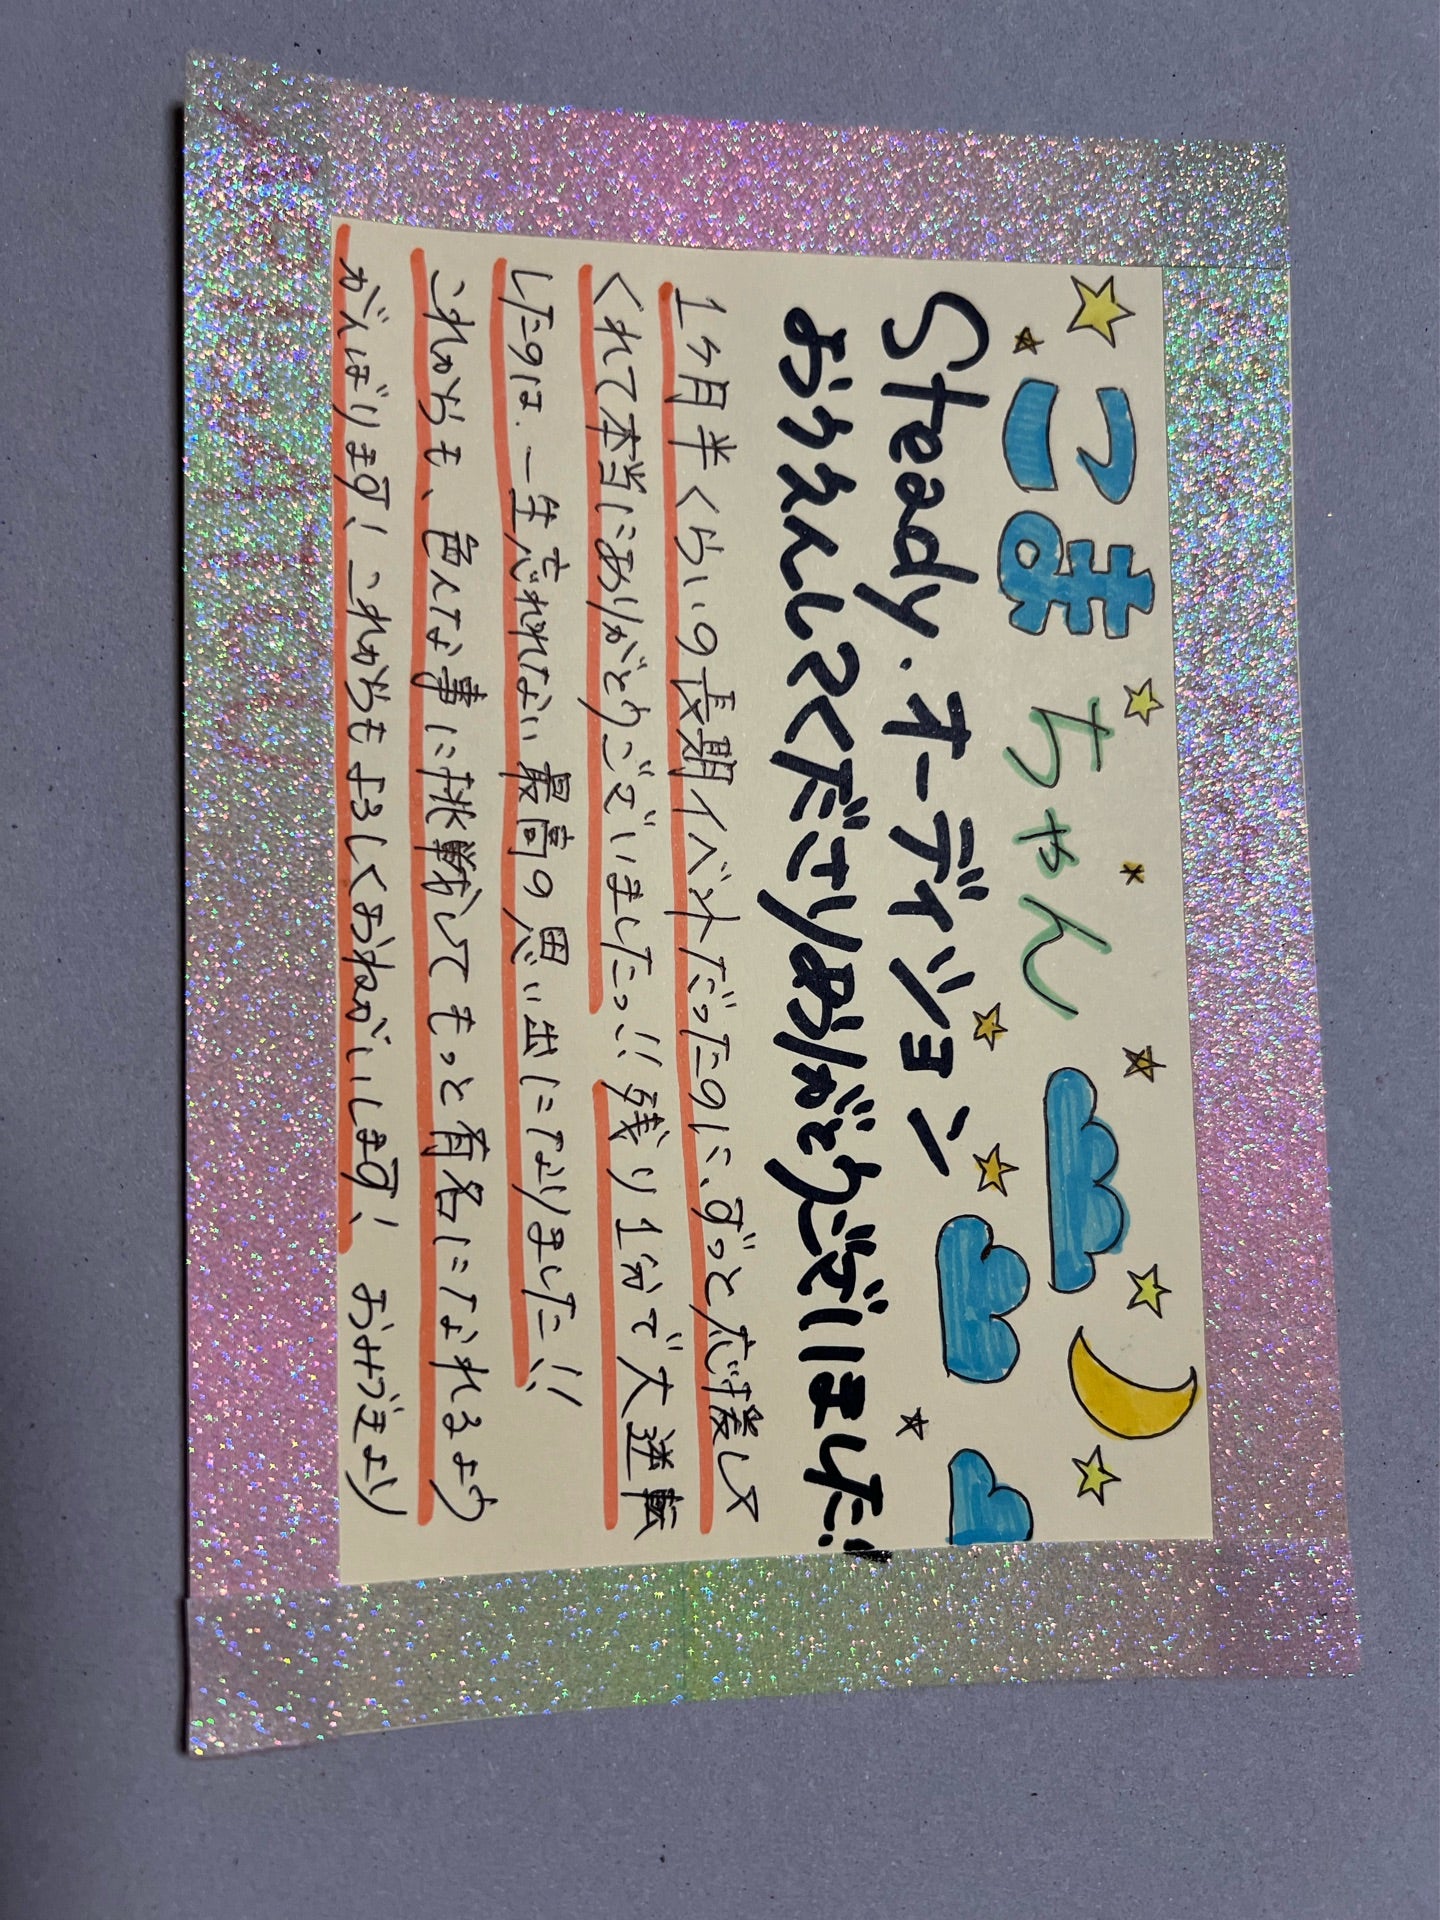 こまちゃん
Steady.オーディション
おうえんしてくださりありがとうございました!!
1ヶ月半くらいの長期イベントだったのに、ずっと応援して
くれて本当にありがとうございましたっ!! 残り1分で大逆転
したのは、一生忘れれない最高の思い出になりました!!
これからも、色んな事に挑戦してもっと有名になれるよう
がんばります! これからもよろしくおねがいします! おみづまより